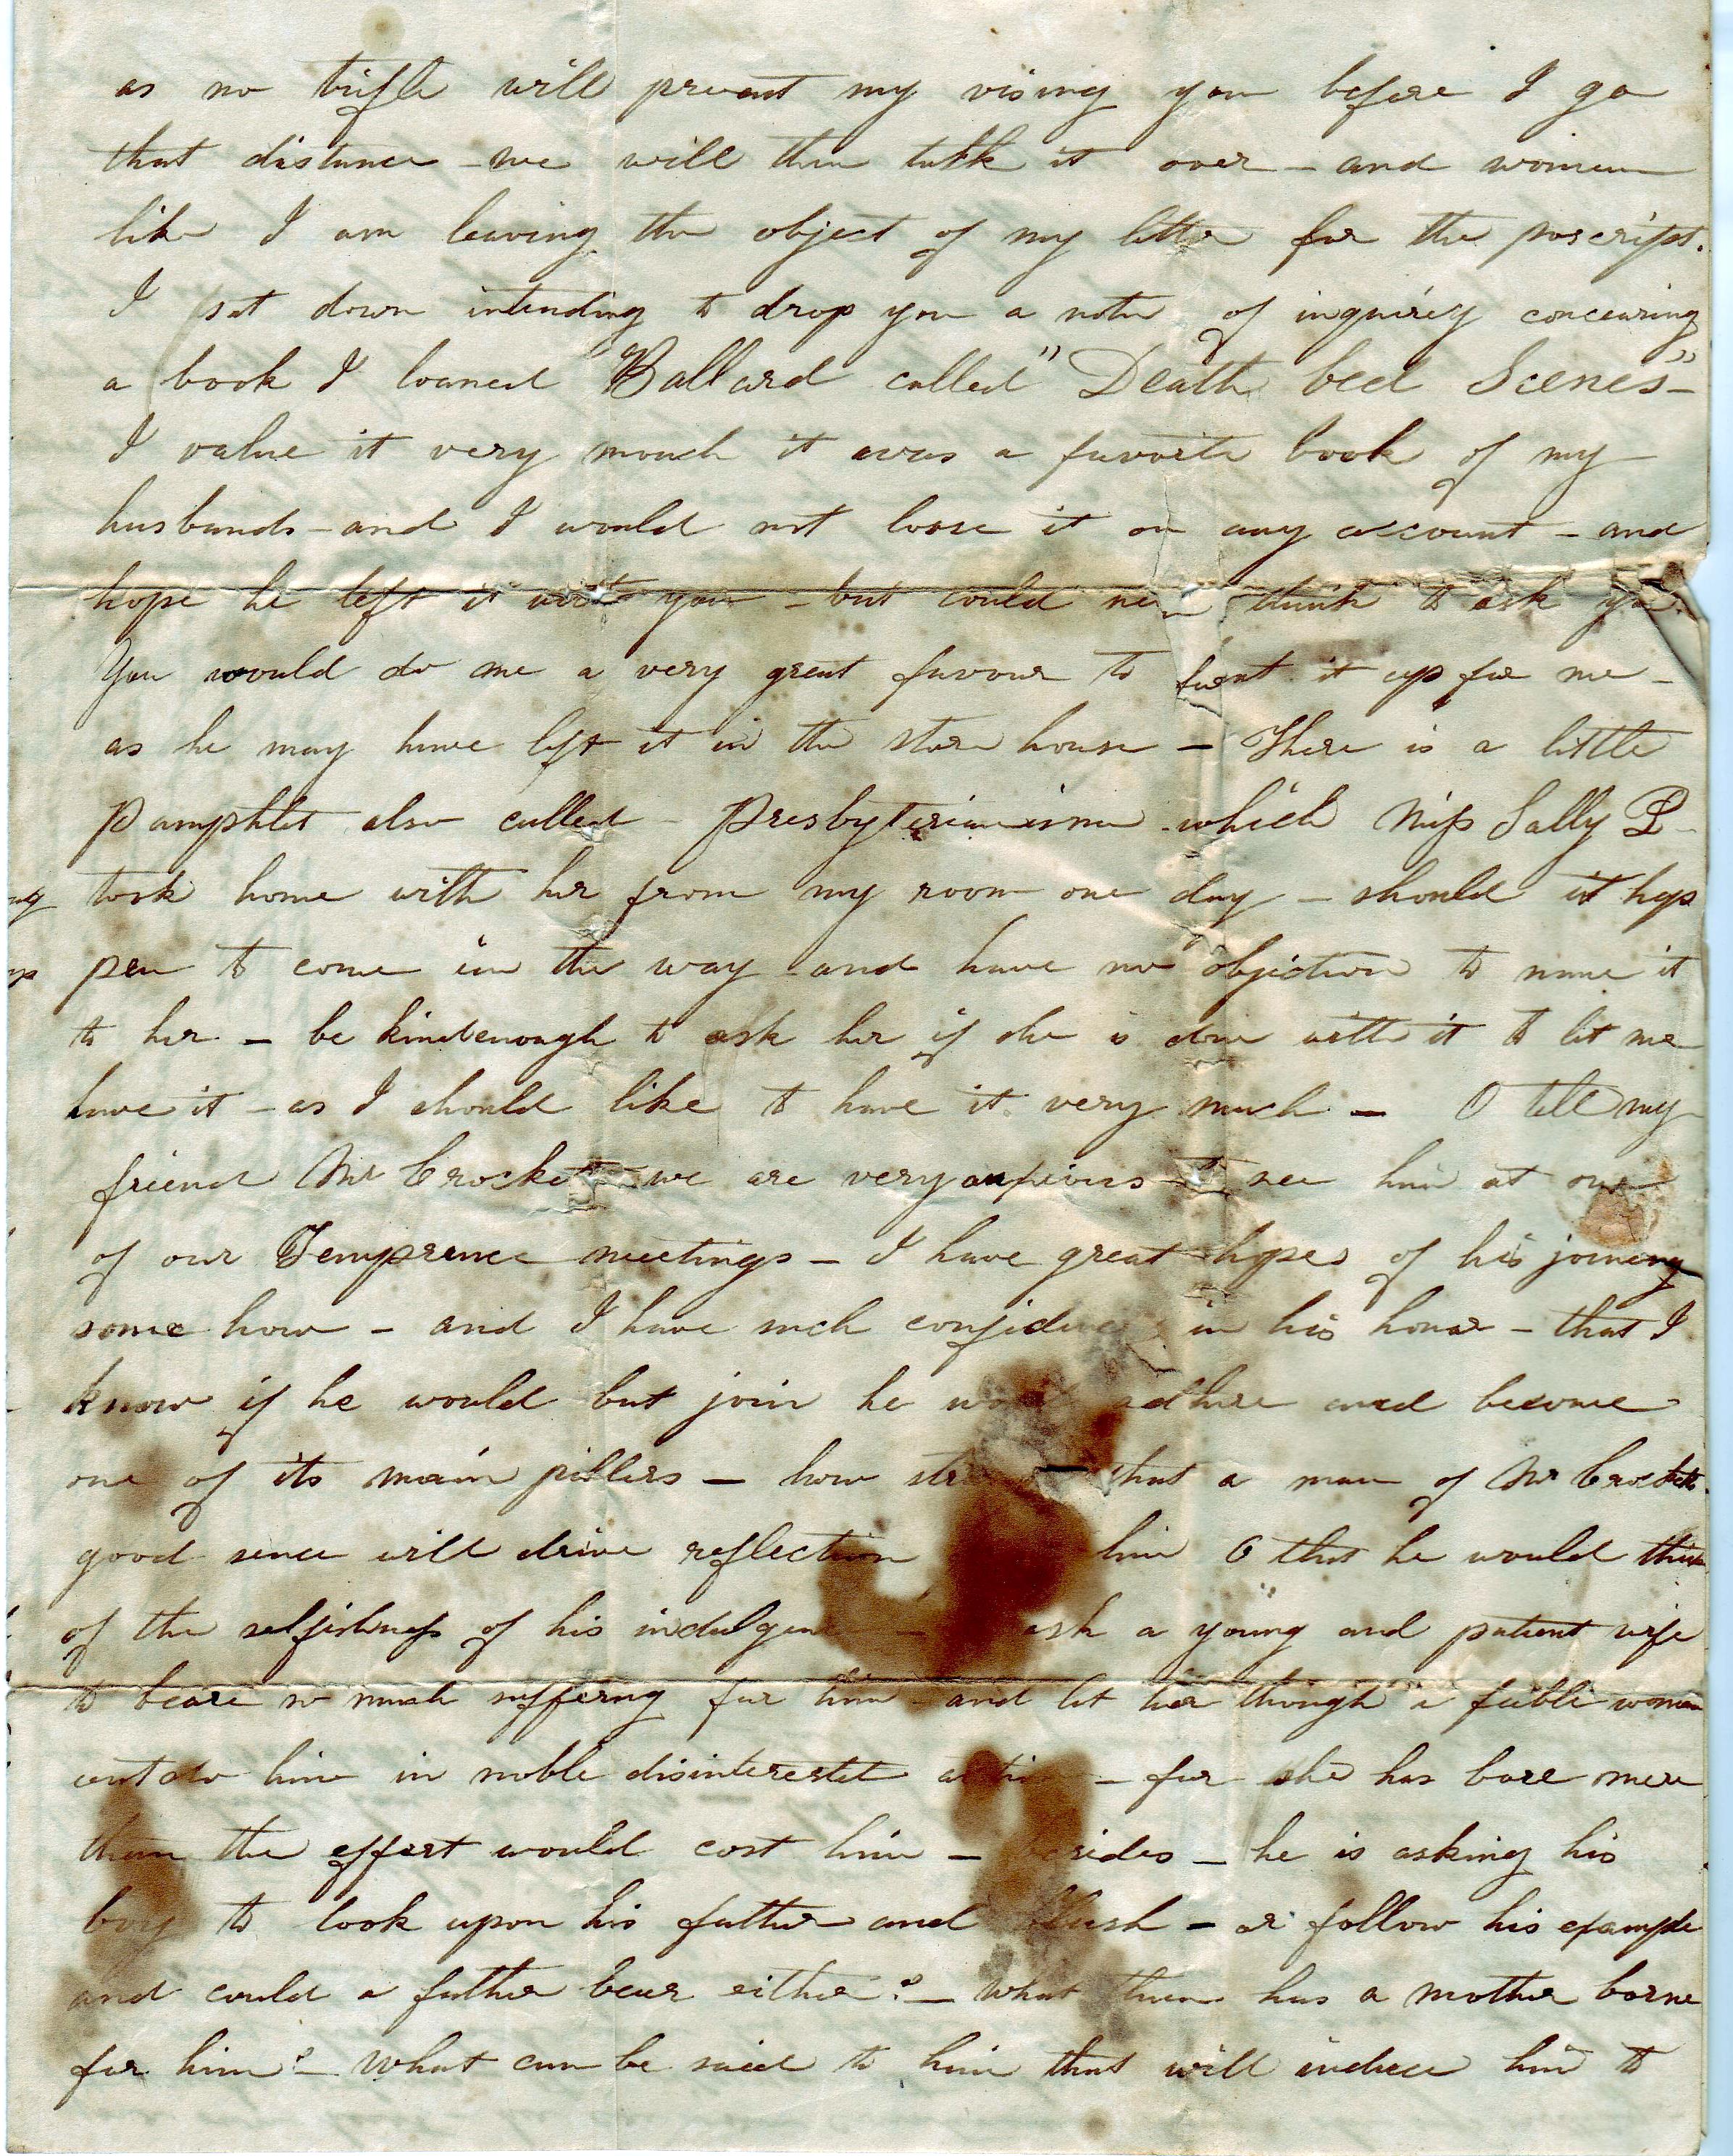 as no trifle will prevent my vising you before I go
that distance - we will then talk it over - and women
like I am leaving the object of my letter for the porscript.
I sat down intending to drop you a note of inquirey concearing
a book I loaned Ballard called "Death bed Scenes" -
I value it very mouch it was a favorite book of my
husbands - and I would not loose it on any account - and
hope he left it with you - but could think to ask you.
You would do me a very great favour to hunt it up for me -
as he may have left it in the store house - There is a little
Pamphlet also called - Presbyterianisim which Miss Sally P -
took home with her from my room one day - should it hap
pen to come in the way - and have no objection to name it
to her - be kind enough to ask her if she is done with it to let me
have it - as I should like to have it very much - O tell my
friend Mr Crockett we are very anxious to see him at one
of our Temprence meetings - I have great hopes of his joining
some how - and I have such confidence in his honor - that I
know if he would but join he would adhere and become
one of its main pillers - how that a man of Mr Crocketts
good sence will drive reflection him O that he would think
of the selfishness of his indulgence - ask a young and patient wife
to beare so much suffering for him - and let her though a feeble women
outdo him in noble disinterestet action - for she has bore more
than the effort would cost him - besides - he is asking his
boy to look upon his father and blush - or follow his example
and could a father bear either? - What then has a mother borne
for him? - What can be said to him that will induce him to